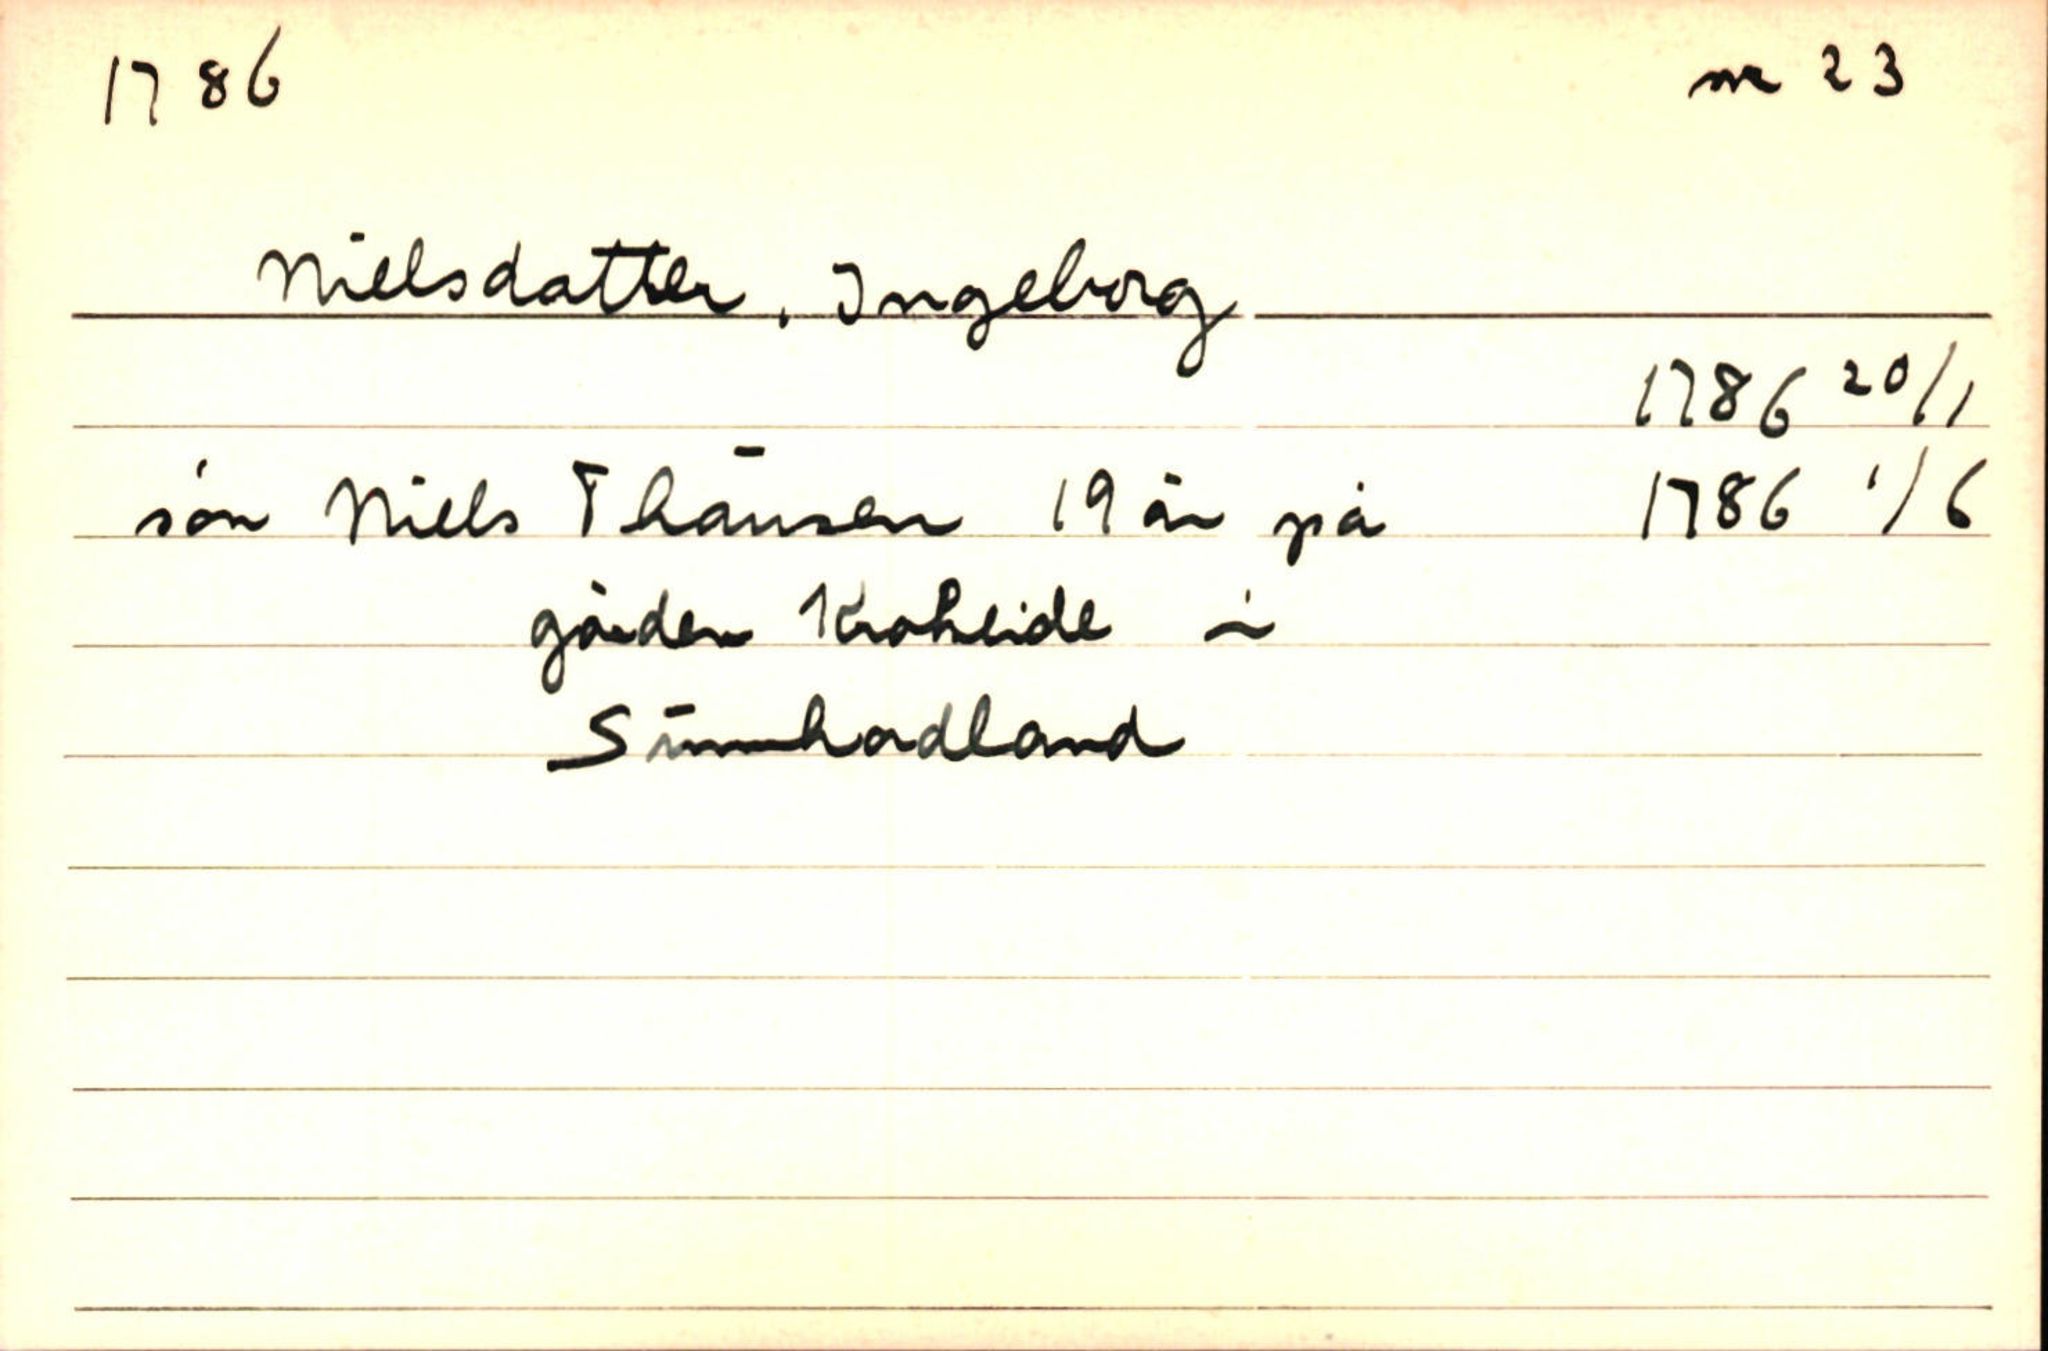 1786 nr 23
Nielsdatter, Ingeborg
1786 20/1
sön Niels Thausen 19 år på 1786 1/6
gården Kroheide i
Sunnhordland